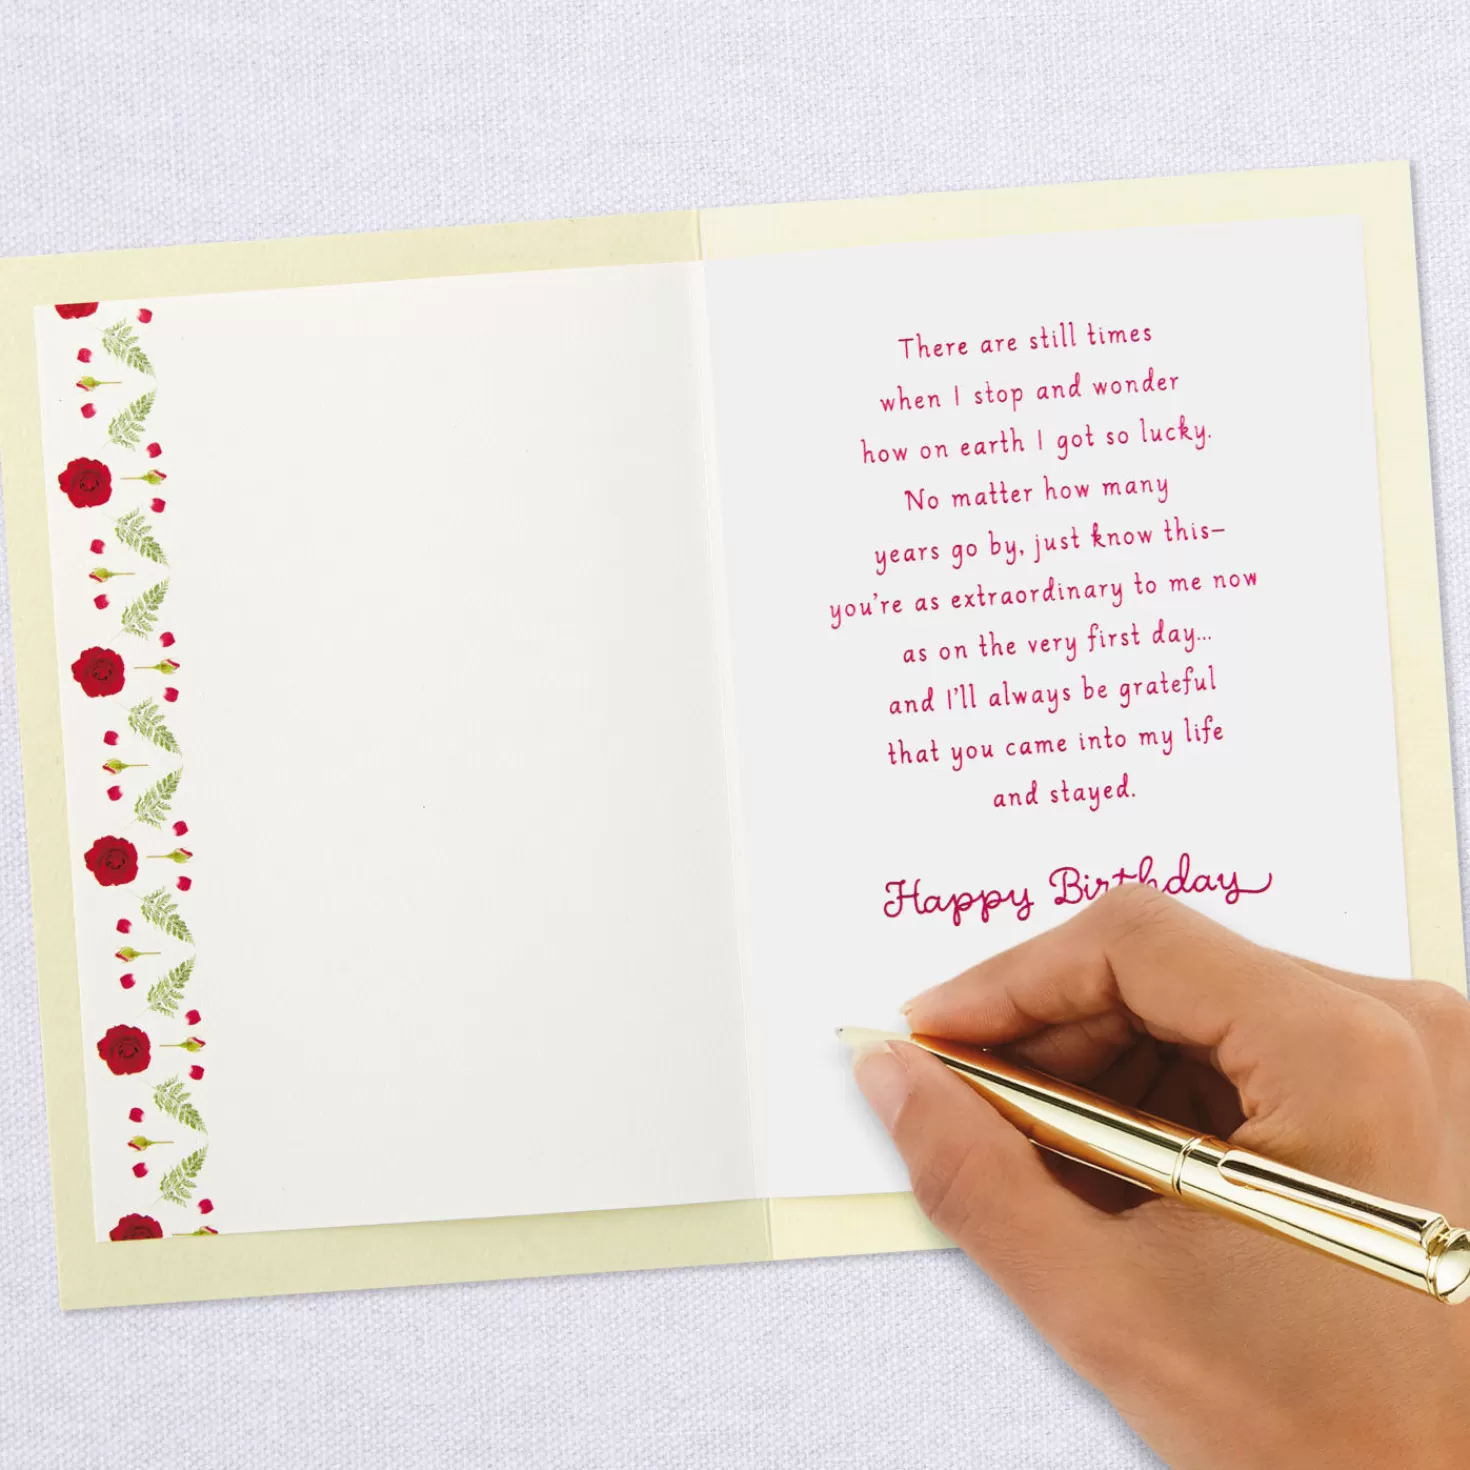 There are still times
when I stop and wonder
how on earth I got so lucky.
No matter how many
years go by, just know this—
you're as extraordinary to me now
as on the very first day...
and I'll always be grateful
that you came into my life
and stayed.
Happy Birthday